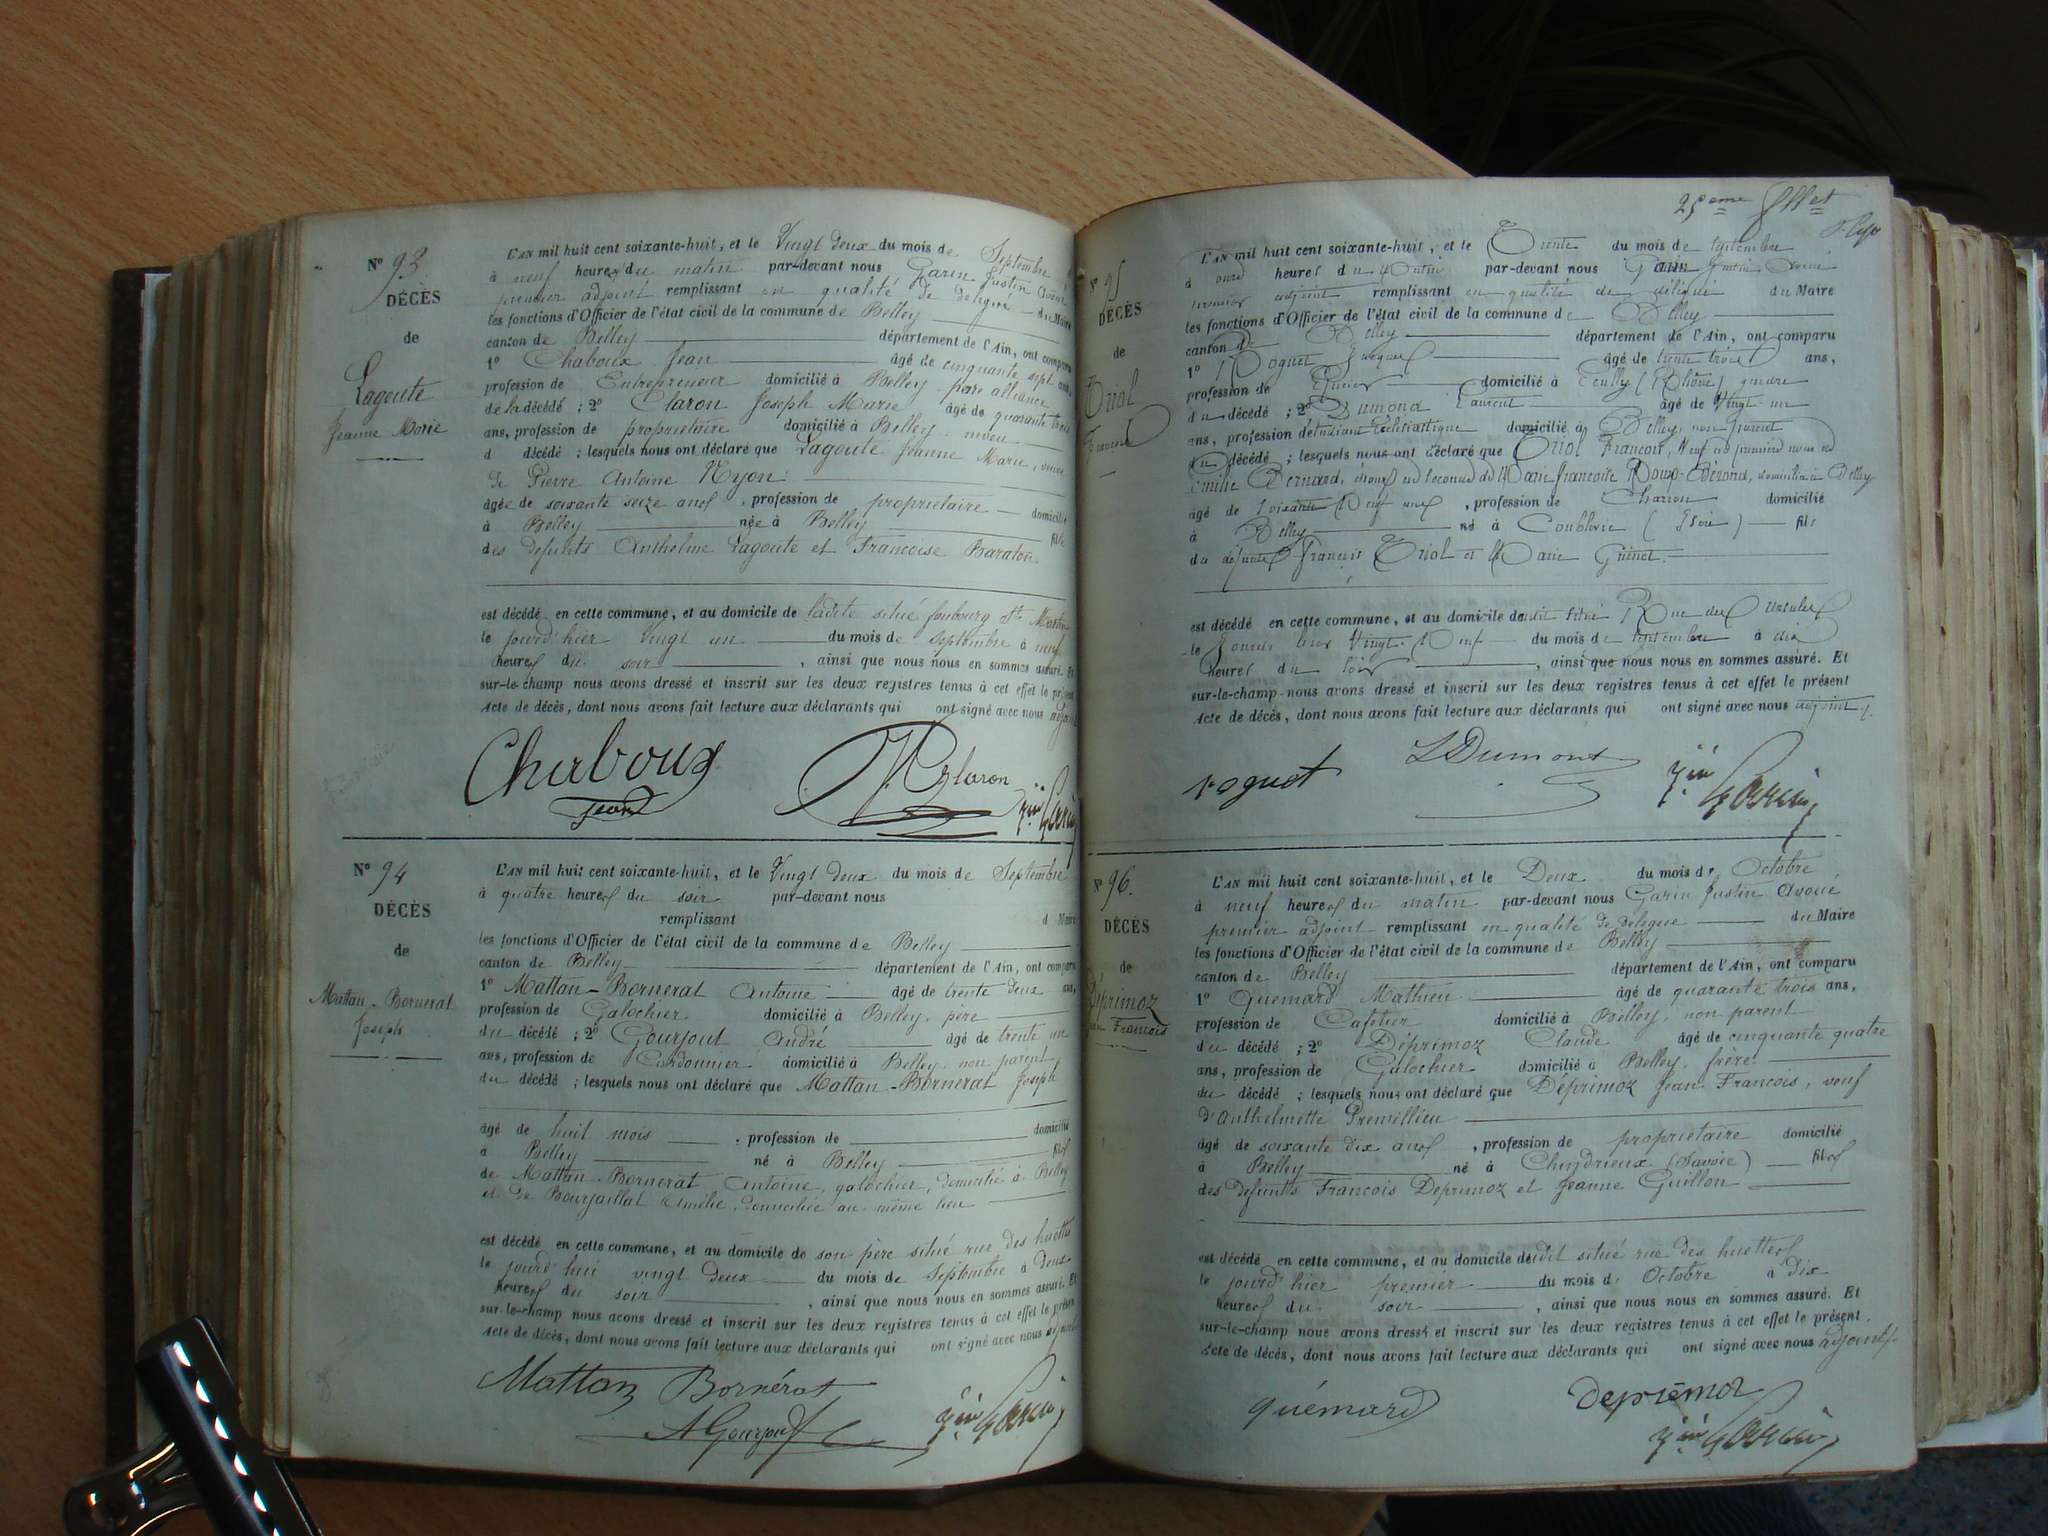 Nº 93
DÉCÈS
de
Lagoute
Jeanne Marie
L'AN mil huit cent soixante-huit, et le Vingt deux du mois de Septembre
à neuf heures du matin par-devant nous Garin Justin Avoué
premier adjoint remplissant en qualité de délégué du Maire
les fonctions d'Officier de l'état civil de la commune de Belley
canton de Belley département de l'Ain, ont comparu
1º Chaboux Jean âgé de cinquante sept ans,
profession de Entrepreneur domicilié à Belley, par alliance
de la décédé ; 2º Claron Joseph Marie âgé de quarante trois
ans, profession de propriétaire domicilié à Belley, neveu
d décédé ; lesquels nous ont déclaré que Lagoute Jeanne Marie, veuve
de Pierre Antoine Nyon
âgée de soixante seize ans, profession de propriétaire domicilié
à Belley née à Belley fille
des defunts Anthelme Lagoute et Francoise Baraton
est décédé en cette commune, et au domicile de ladite situé faubourg St Martin
le jourd'hier vingt un du mois de Septembre à neuf
heures du soir, ainsi que nous nous en sommes assuré. Et
sur-le-champ nous avons dressé et inscrit sur les deux registres tenus à cet effet le présent
Acte de décès, dont nous avons fait lecture aux déclarants qui ont signé avec nous adjoint
Chaboux
Jean
Claron
Garin
Nº 94
DÉCÈS
de
Mattan-Bornerat
Joseph
L'AN mil huit cent soixante-huit, et le Vingt deux du mois de Septembre
à quatre heures du soir par-devant nous
remplissant d Maire
les fonctions d'Officier de l'état civil de la commune de Belley
canton de Belley département de l'Ain, ont comparu
1º Mattan-Bornerat Antoine âgé de trente deux ans,
profession de Galochier domicilié à Belley, père
du décédé ; 2º Gourjout André âgé de trente un
ans, profession de Cordonnier domicilié à Belley, non parent
du décédé ; lesquels nous ont déclaré que Mattan-Bornerat Joseph
âgé de huit mois, profession de domicilié
à Belley né à Belley fils
de Mattan-Bornerat Antoine, galochier, domicilié à Belley
et de Bourjaillat Amélie, domiciliée au même lieu
est décédé en cette commune, et au domicile de son père situé rue des huettes
le jourd'hui vingt deux du mois de Septembre à deux
heures du soir, ainsi que nous nous en sommes assuré. Et
sur-le-champ nous avons dressé et inscrit sur les deux registres tenus à cet effet le présent
Acte de décès, dont nous avons fait lecture aux déclarants qui ont signé avec nous adjoint
Mattan Bornérat
A Gourjout
Garin
25eme ffllet
Nº 95
DÉCÈS
de
Oriol
Francois
L'AN mil huit cent soixante-huit, et le Trente du mois de Septembre
à onze heures du Matin par-devant nous Garin Justin Avoué
premier adjoint remplissant en qualité de délégué du Maire
les fonctions d'Officier de l'état civil de la commune de Belley
canton de Belley département de l'Ain, ont comparu
1º Roguet Jacques âgé de trente trois ans,
profession de domicilié à Ecully (Rhône) gendre
du décédé ; 2º Dumond Laurent âgé de Vingt un
ans, profession d'etudiant Ecclésiastique domicilié à Belley, non parent
du décédé ; lesquels nous ont déclaré que Oriol Francois, Veuf en premier noces de
Emélie Bernard, époux en seconde de Marie francoise Roux-Bévond, domiciliée à Belley
âgé de soixante Neuf ans, profession de Charron domicilié
à Belley né à Coublevie (Isère) fils
de défunts françois Oriol et Marie Guinet
est décédé en cette commune, et au domicile dudit situé Rue des Ursules
le jourd'hier Vingt Neuf du mois de septembre à dix
heures du soir, ainsi que nous nous en sommes assuré. Et
sur-le-champ nous avons dressé et inscrit sur les deux registres tenus à cet effet le présent
Acte de décès, dont nous avons fait lecture aux déclarants qui ont signé avec nous adjoint
roguet
L Dumont
Garin
Nº 96.
DÉCÈS
de
Déprimoz
Jean Francois
L'AN mil huit cent soixante-huit, et le Deux du mois de Octobre
à neuf heures du matin par-devant nous Garin Justin Avoué
premier adjoint remplissant en qualité de délégué du Maire
les fonctions d'Officier de l'état civil de la commune de Belley
canton de Belley département de l'Ain, ont comparu
1º Quémard Mathieu âgé de quarante trois ans,
profession de Cafetier domicilié à Belley, non parent
du décédé ; 2º Déprimoz Claude âgé de cinquante quatre
ans, profession de Galochier domicilié à Belley, frère
du décédé ; lesquels nous ont déclaré que Déprimoz Jean Francois, veuf
d'Anthelmette Premillieu
âgé de soixante dix ans, profession de propriétaire domicilié
à Belley né à Chindrieux (Savoie) fils
des defunts Francois Déprimoz et Jeanne Guillon
est décédé en cette commune, et au domicile dudit situé rue des huettes
le jourd'hier premier du mois d' Octobre à dix
heures du soir, ainsi que nous nous en sommes assuré. Et
sur-le-champ nous avons dressé et inscrit sur les deux registres tenus à cet effet le présent
Acte de décès, dont nous avons fait lecture aux déclarants qui ont signé avec nous adjoint
quémard
deprimoz
Garin